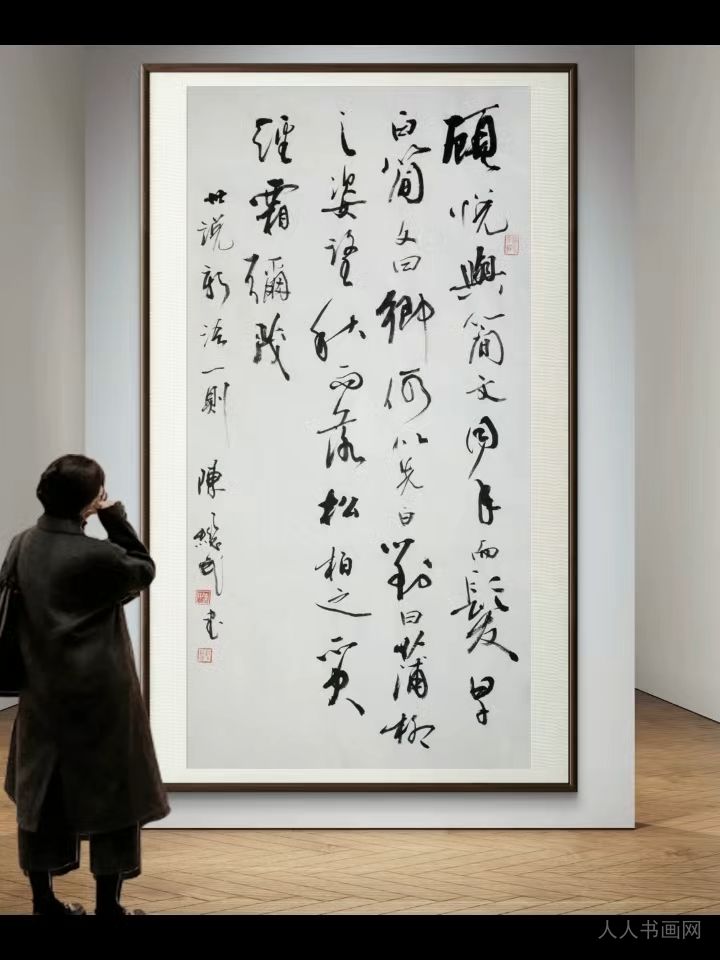 顧悅與簡文同年而髮早
白簡文曰卿何以先白對曰蒲柳
之姿望秋而落松柏之質
經霜彌茂
世説新語一則 陳 書
人人书画网